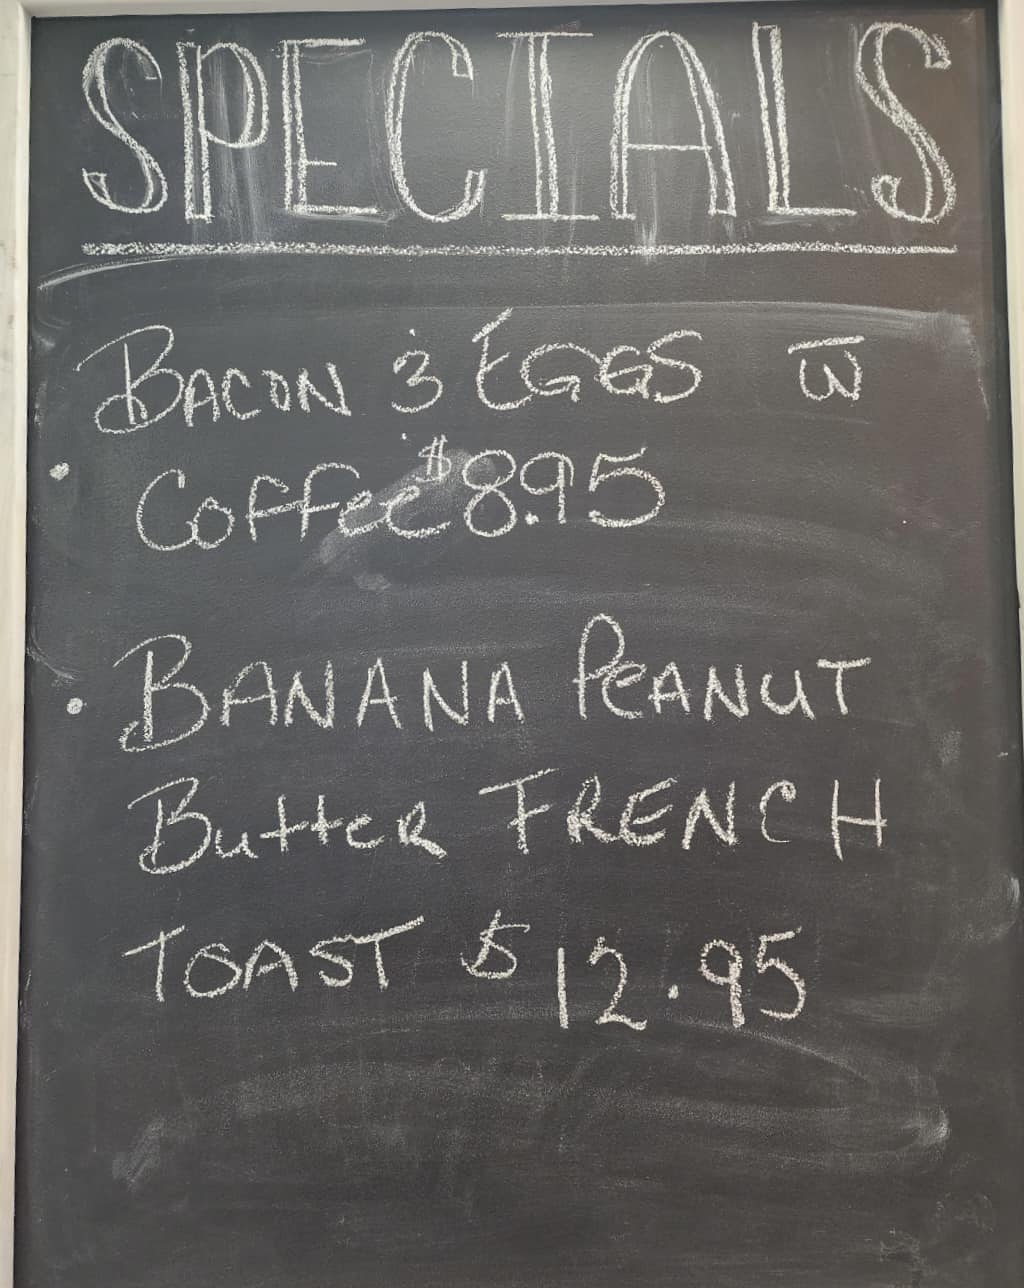 SPECIALS
BACON & EGGS w̅
COFFEE $8.95
• BANANA PEANUT
BUTTER FRENCH
TOAST $12.95